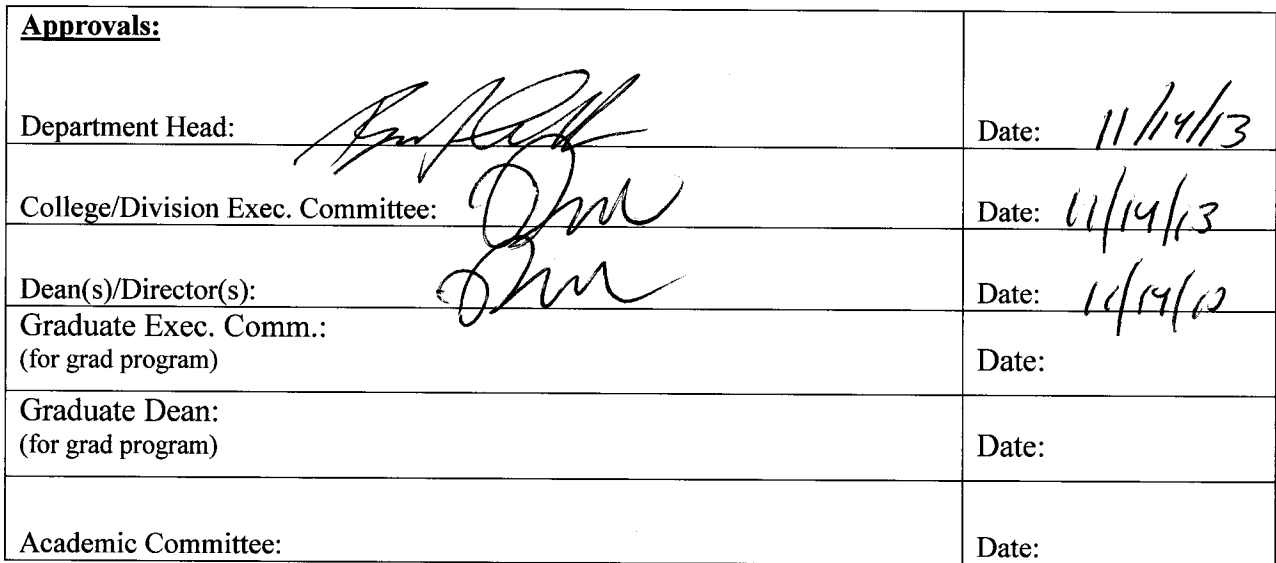 Approvals:
Department Head:
Date: 11/14/13
College/Division Exec. Committee:
Date: 11/14/13
Dean(s)/Director(s):
Date:
Graduate Exec. Comm.:
(for grad program)
Date:
Graduate Dean:
(for grad program)
Date:
Academic Committee:
Date: